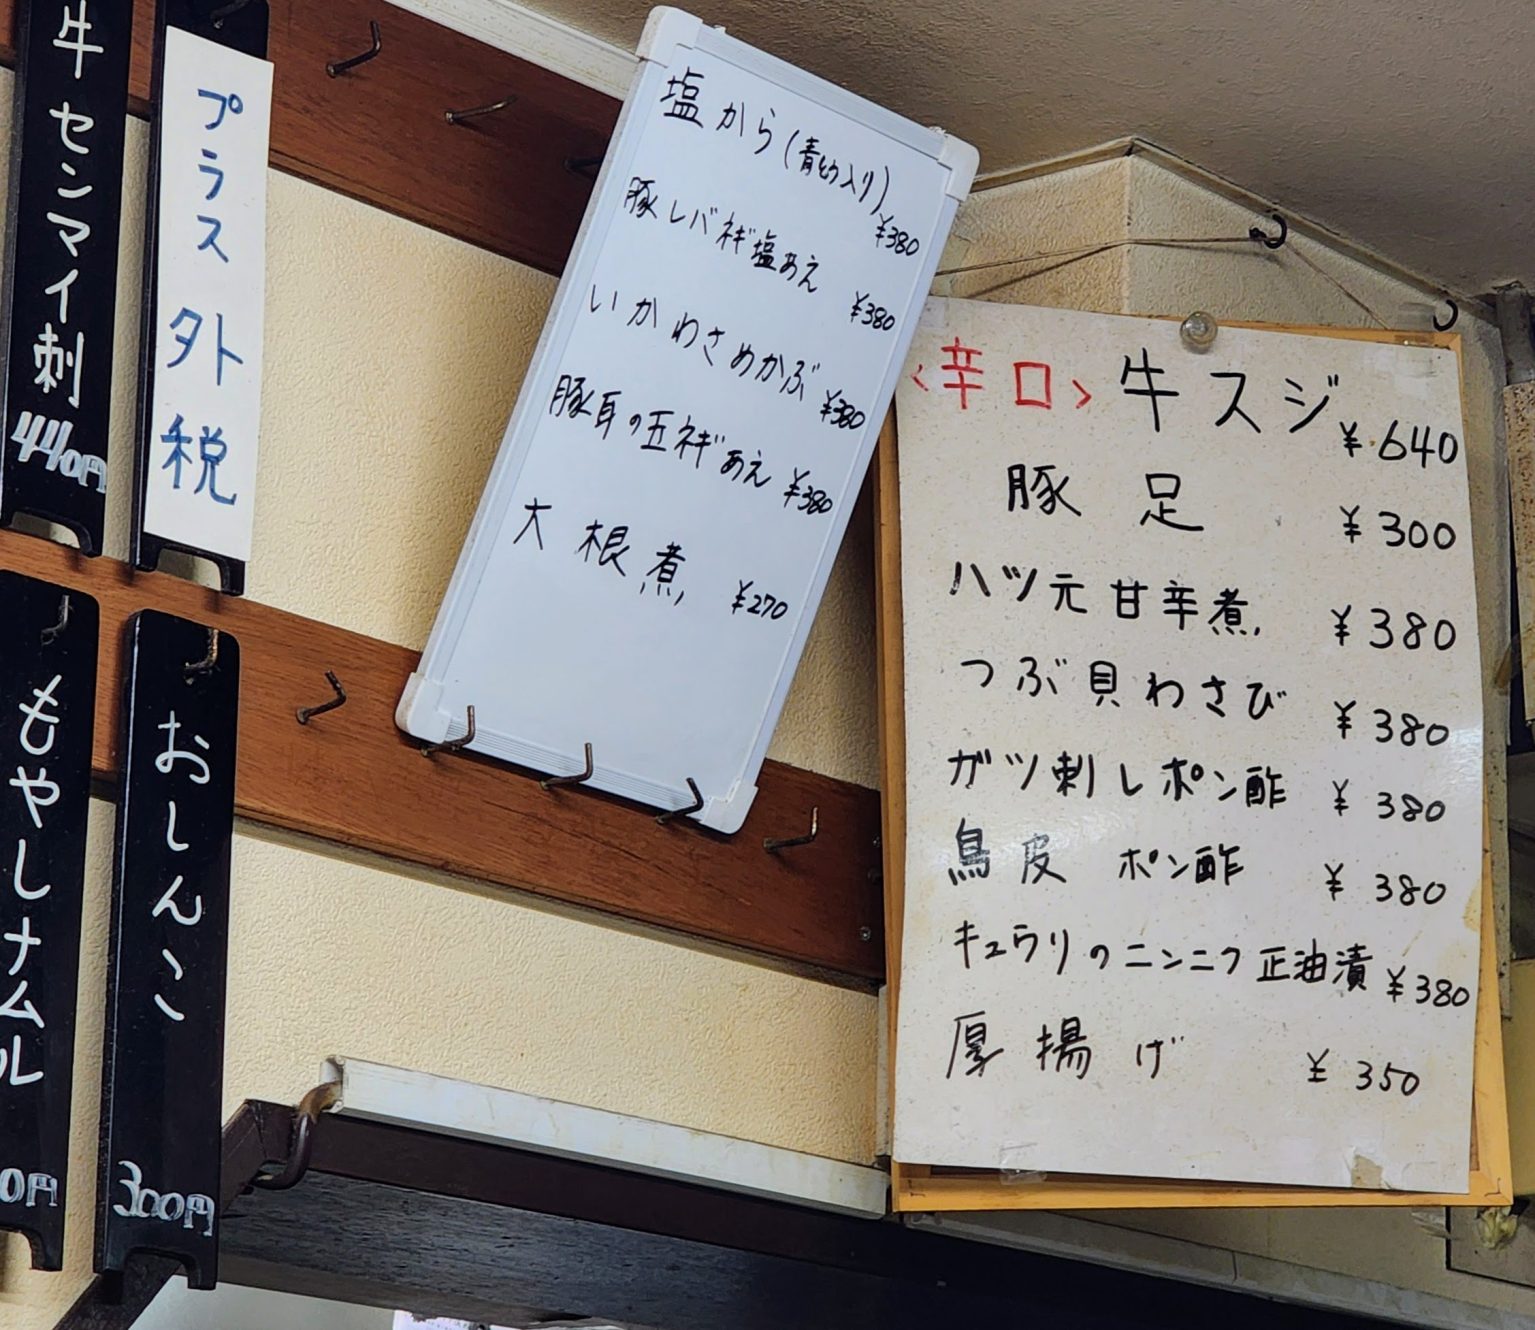 牛センマイ刺
440円
プラス外税
もやしナムル
0円
おしんこ
300円
塩から(青とう入り) ¥380
豚レバネギ塩あえ ¥380
いかわさめかぶ ¥380
豚耳の五ネギあえ ¥380
大根煮 ¥270
<辛口>牛スジ ¥640
豚足 ¥300
ハツ元甘辛煮 ¥380
つぶ貝わさび ¥380
ガツ刺しポン酢 ¥380
鳥皮ポン酢 ¥380
キュウリのニンニク正油漬 ¥380
厚揚げ ¥350